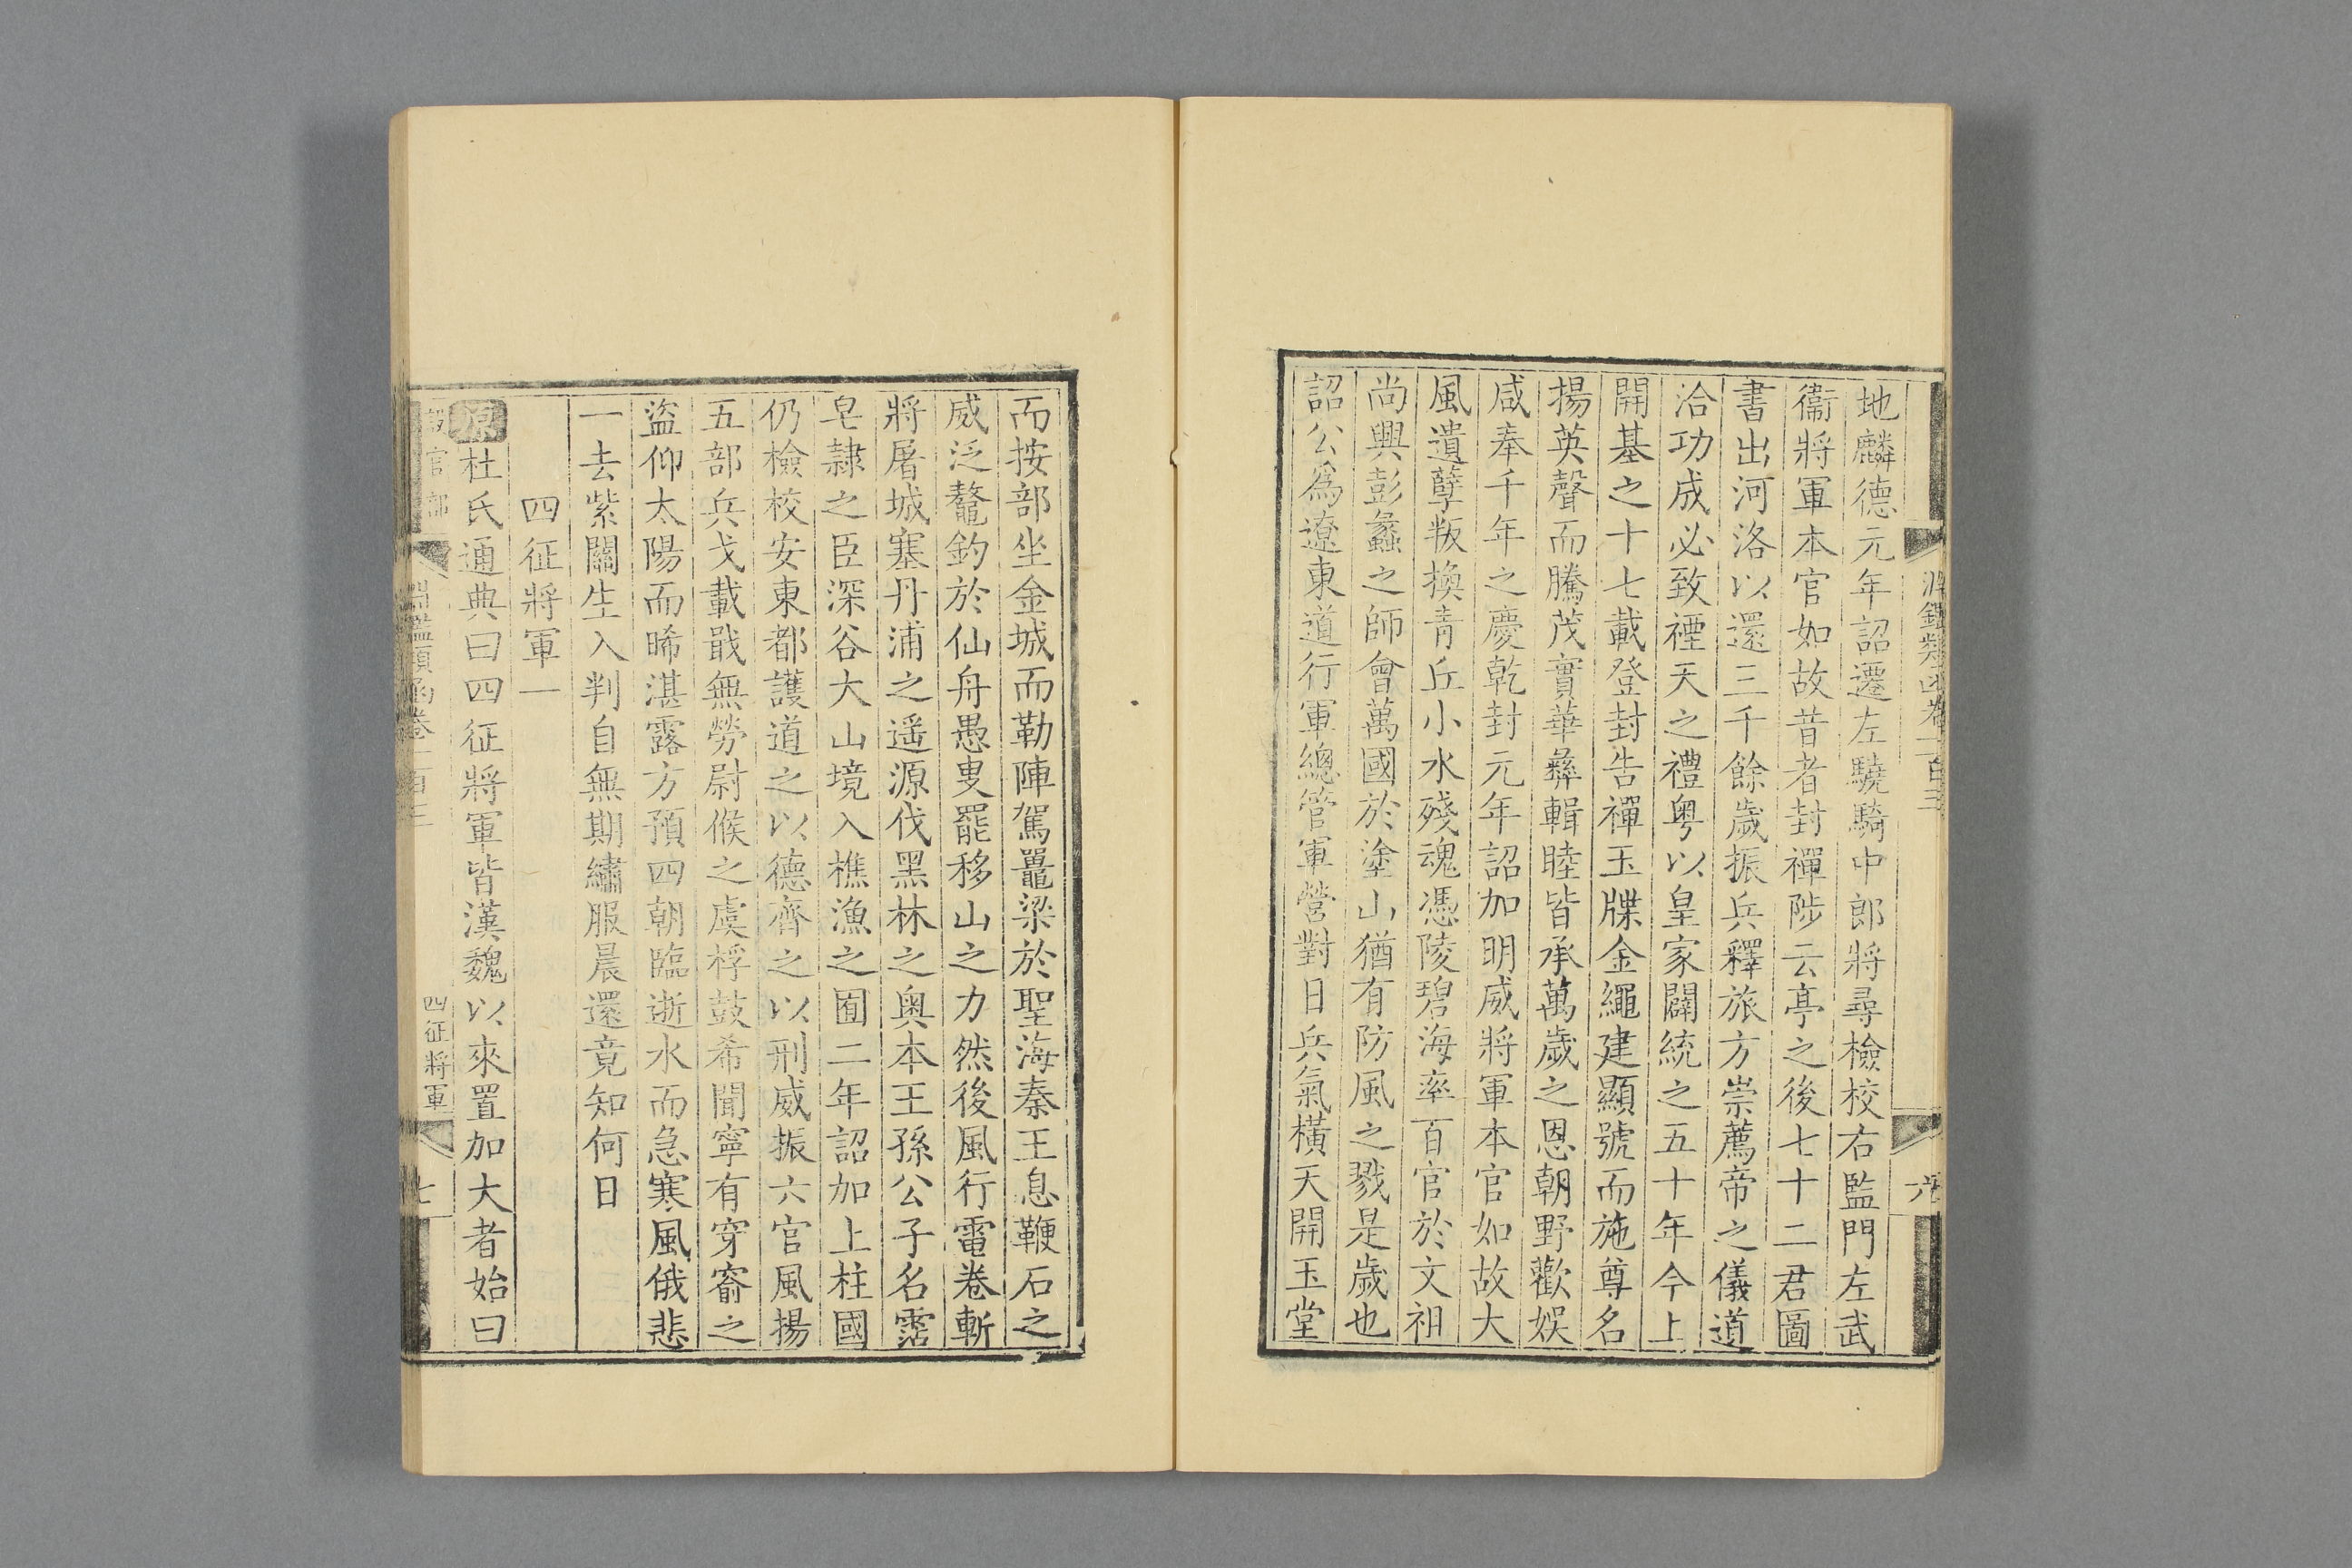 淵鑑類函卷一百三
六
地麟德元年詔遷左驍騎中郎將尋檢校右監門左武
衞將軍本官如故昔者封禪陟云亭之後七十二君圖
書出河洛以還三千餘歲振兵釋旅方崇薦帝之儀道
洽功成必致禋天之禮粤以皇家闢統之五十年今上
開基之十七載登封告禪玉牒金繩建顯號而施尊名
揚英聲而騰茂實華彝輯睦皆承萬歲之恩朝野歡娛
咸奉千年之慶乾封元年詔加明威將軍本官如故大
風遺孽叛換青丘小水殘魂憑陵碧海率百官於文祖
尚興彭蠡之師會萬國於塗山猶有防風之戮是歲也
詔公爲遼東道行軍總管軍營對日兵氣橫天開玉堂
而按部坐金城而勒陣駕鼉梁於聖海秦王息鞭石之
威泛鼇釣於仙舟愚叟罷移山之力然後風行電卷斬
將屠城塞丹浦之遥源伐黑林之奥本王孫公子名霑
皂隸之臣深谷大山境入樵漁之囿二年詔加上柱國
仍檢校安東都護道之以德齊之以刑威振六官風揚
五部兵戈載戢無勞尉候之虞桴鼓希聞寧有穿窬之
盜仰太陽而晞湛露方預四朝臨逝水而急寒風俄悲
一去紫關生入判自無期繡服晨還竟知何日
四征將軍一
原杜氏通典曰四征將軍皆漢魏以來置加大者始曰
設官部
淵鑑類函卷一百三
四征將軍
七